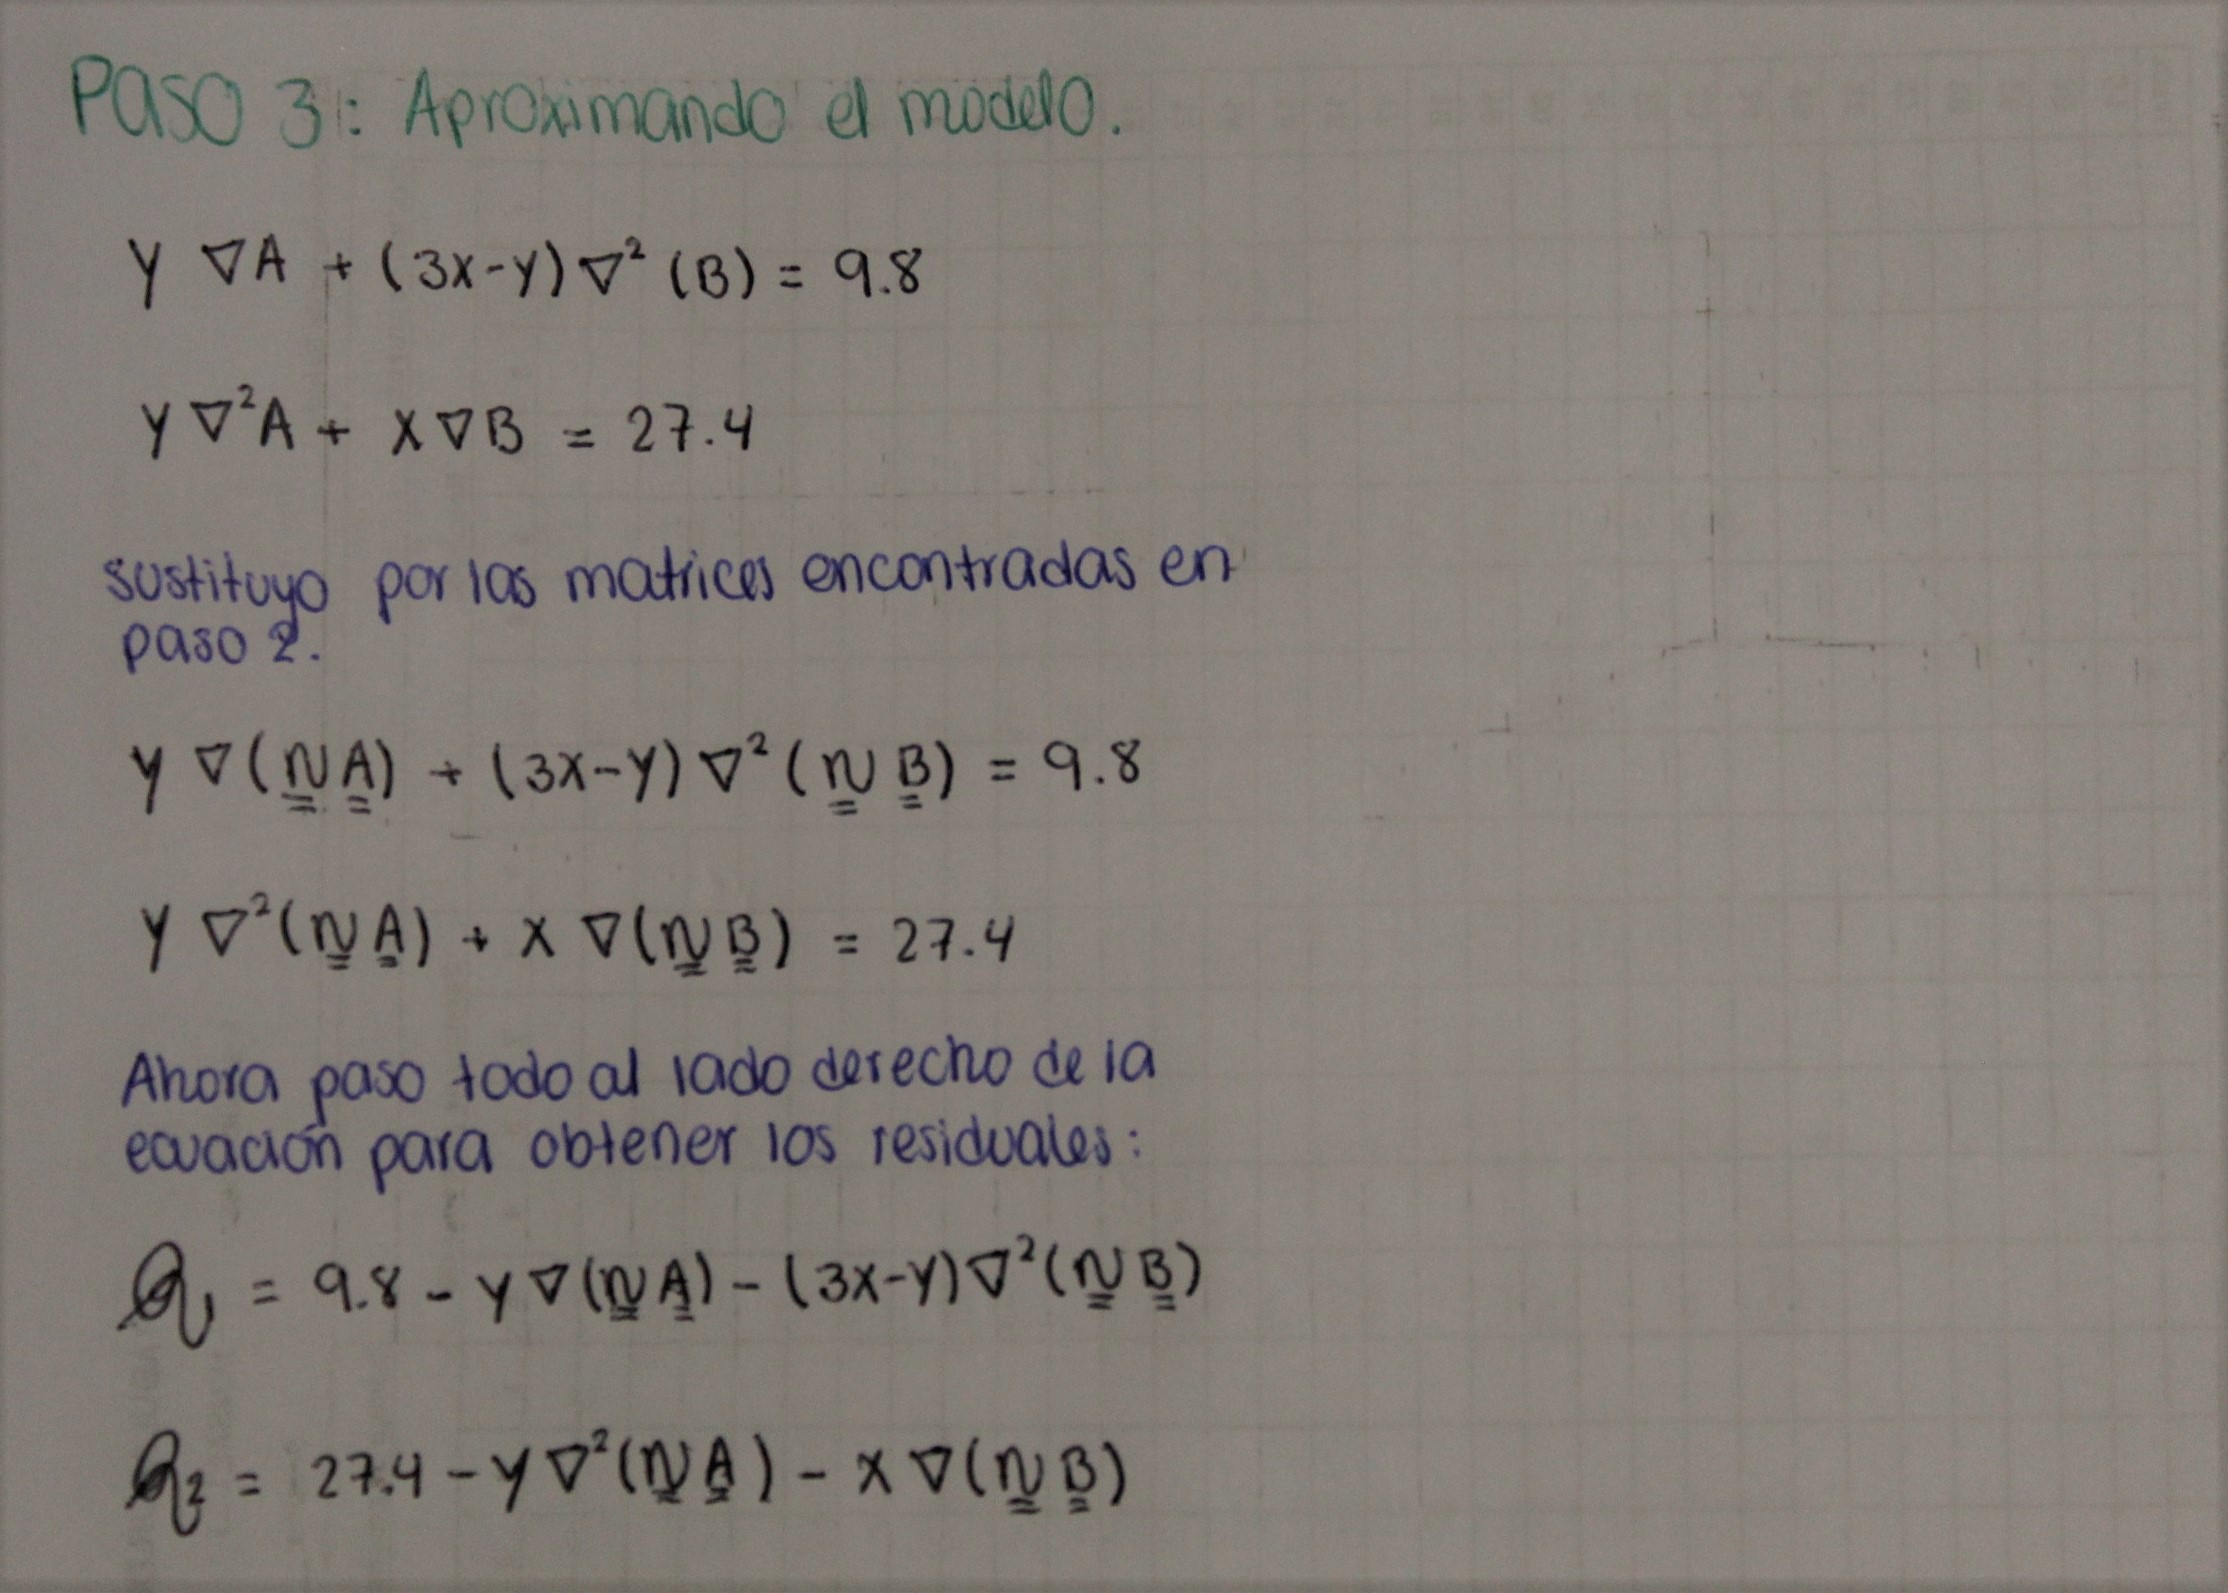 Paso 3: Aproximando el modelo.
y ∇A + (3x-y) ∇² (B) = 9.8
y ∇²A + x ∇B = 27.4
sustituyo por las matrices encontradas en
paso 2.
y ∇(N A) + (3x-y) ∇² (N B) = 9.8
y ∇²(N A) + x ∇(N B) = 27.4
Ahora paso todo al lado derecho de la
ecuación para obtener los residuales:
R₁ = 9.8 - y ∇(N A) - (3x-y)∇²(N B)
R₂ = 27.4 - y ∇²(N A) - x ∇(N B)